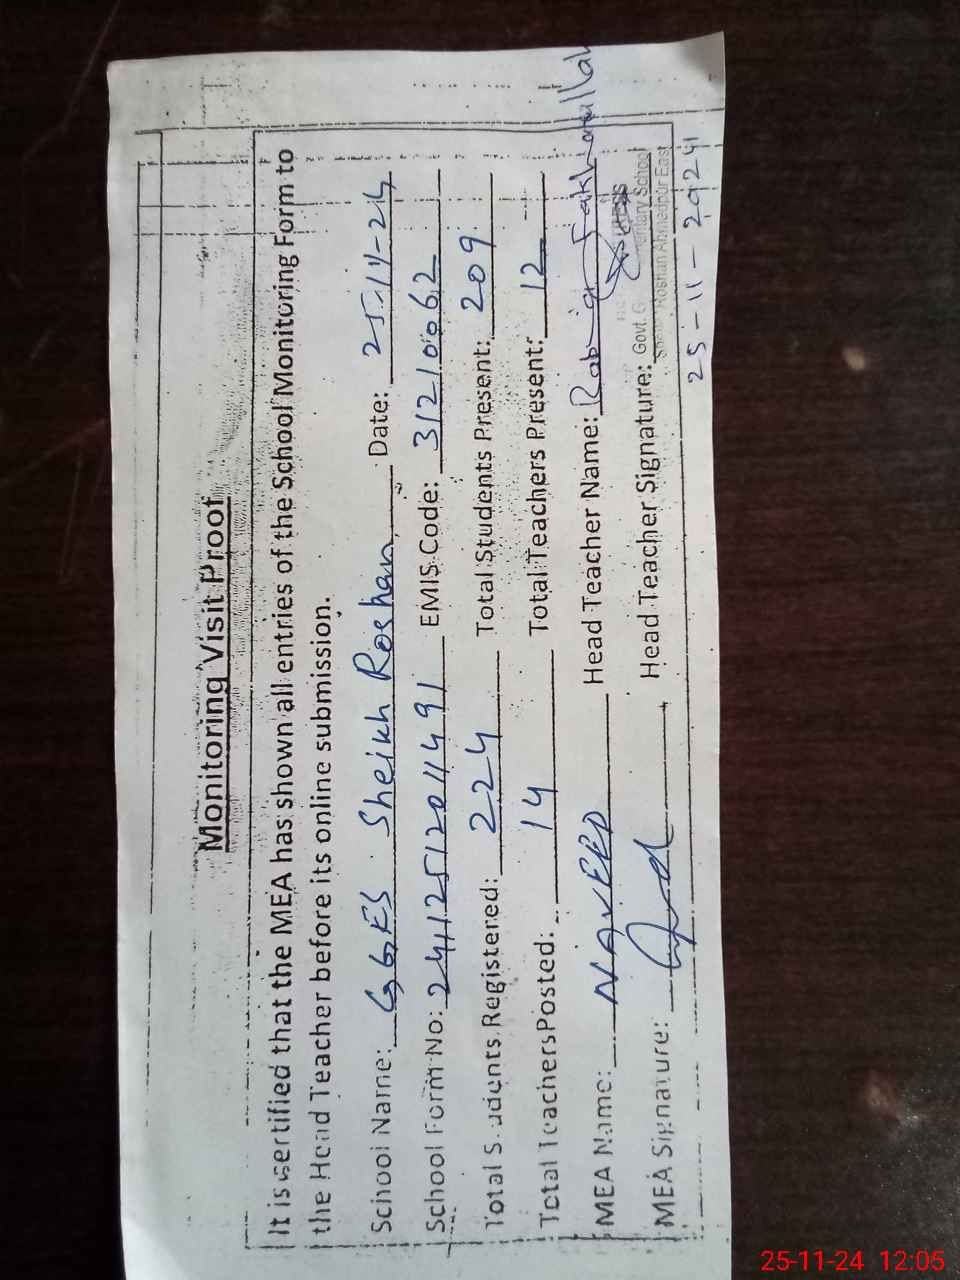 Monitoring Visit Proof
It is certified that the MEA has shown all entries of the School Monitoring Form to
the Head Teacher before its online submission.
School Name: GGES Sheikh Roshan Date: 25-11-24
School Form No: 24112512011491 EMIS Code: 31210062
Total Students Registered: 224 Total Students Present: 209
Total Teachers Posted: 14 Total Teachers Present: 12
MEA Name: NAVEED Head Teacher Name: Rabia Fakharullah
MEA Signature: Head Teacher Signature:
Govt. G School
Roshan Ahmedpur East
25-11-2024
25-11-24 12:05